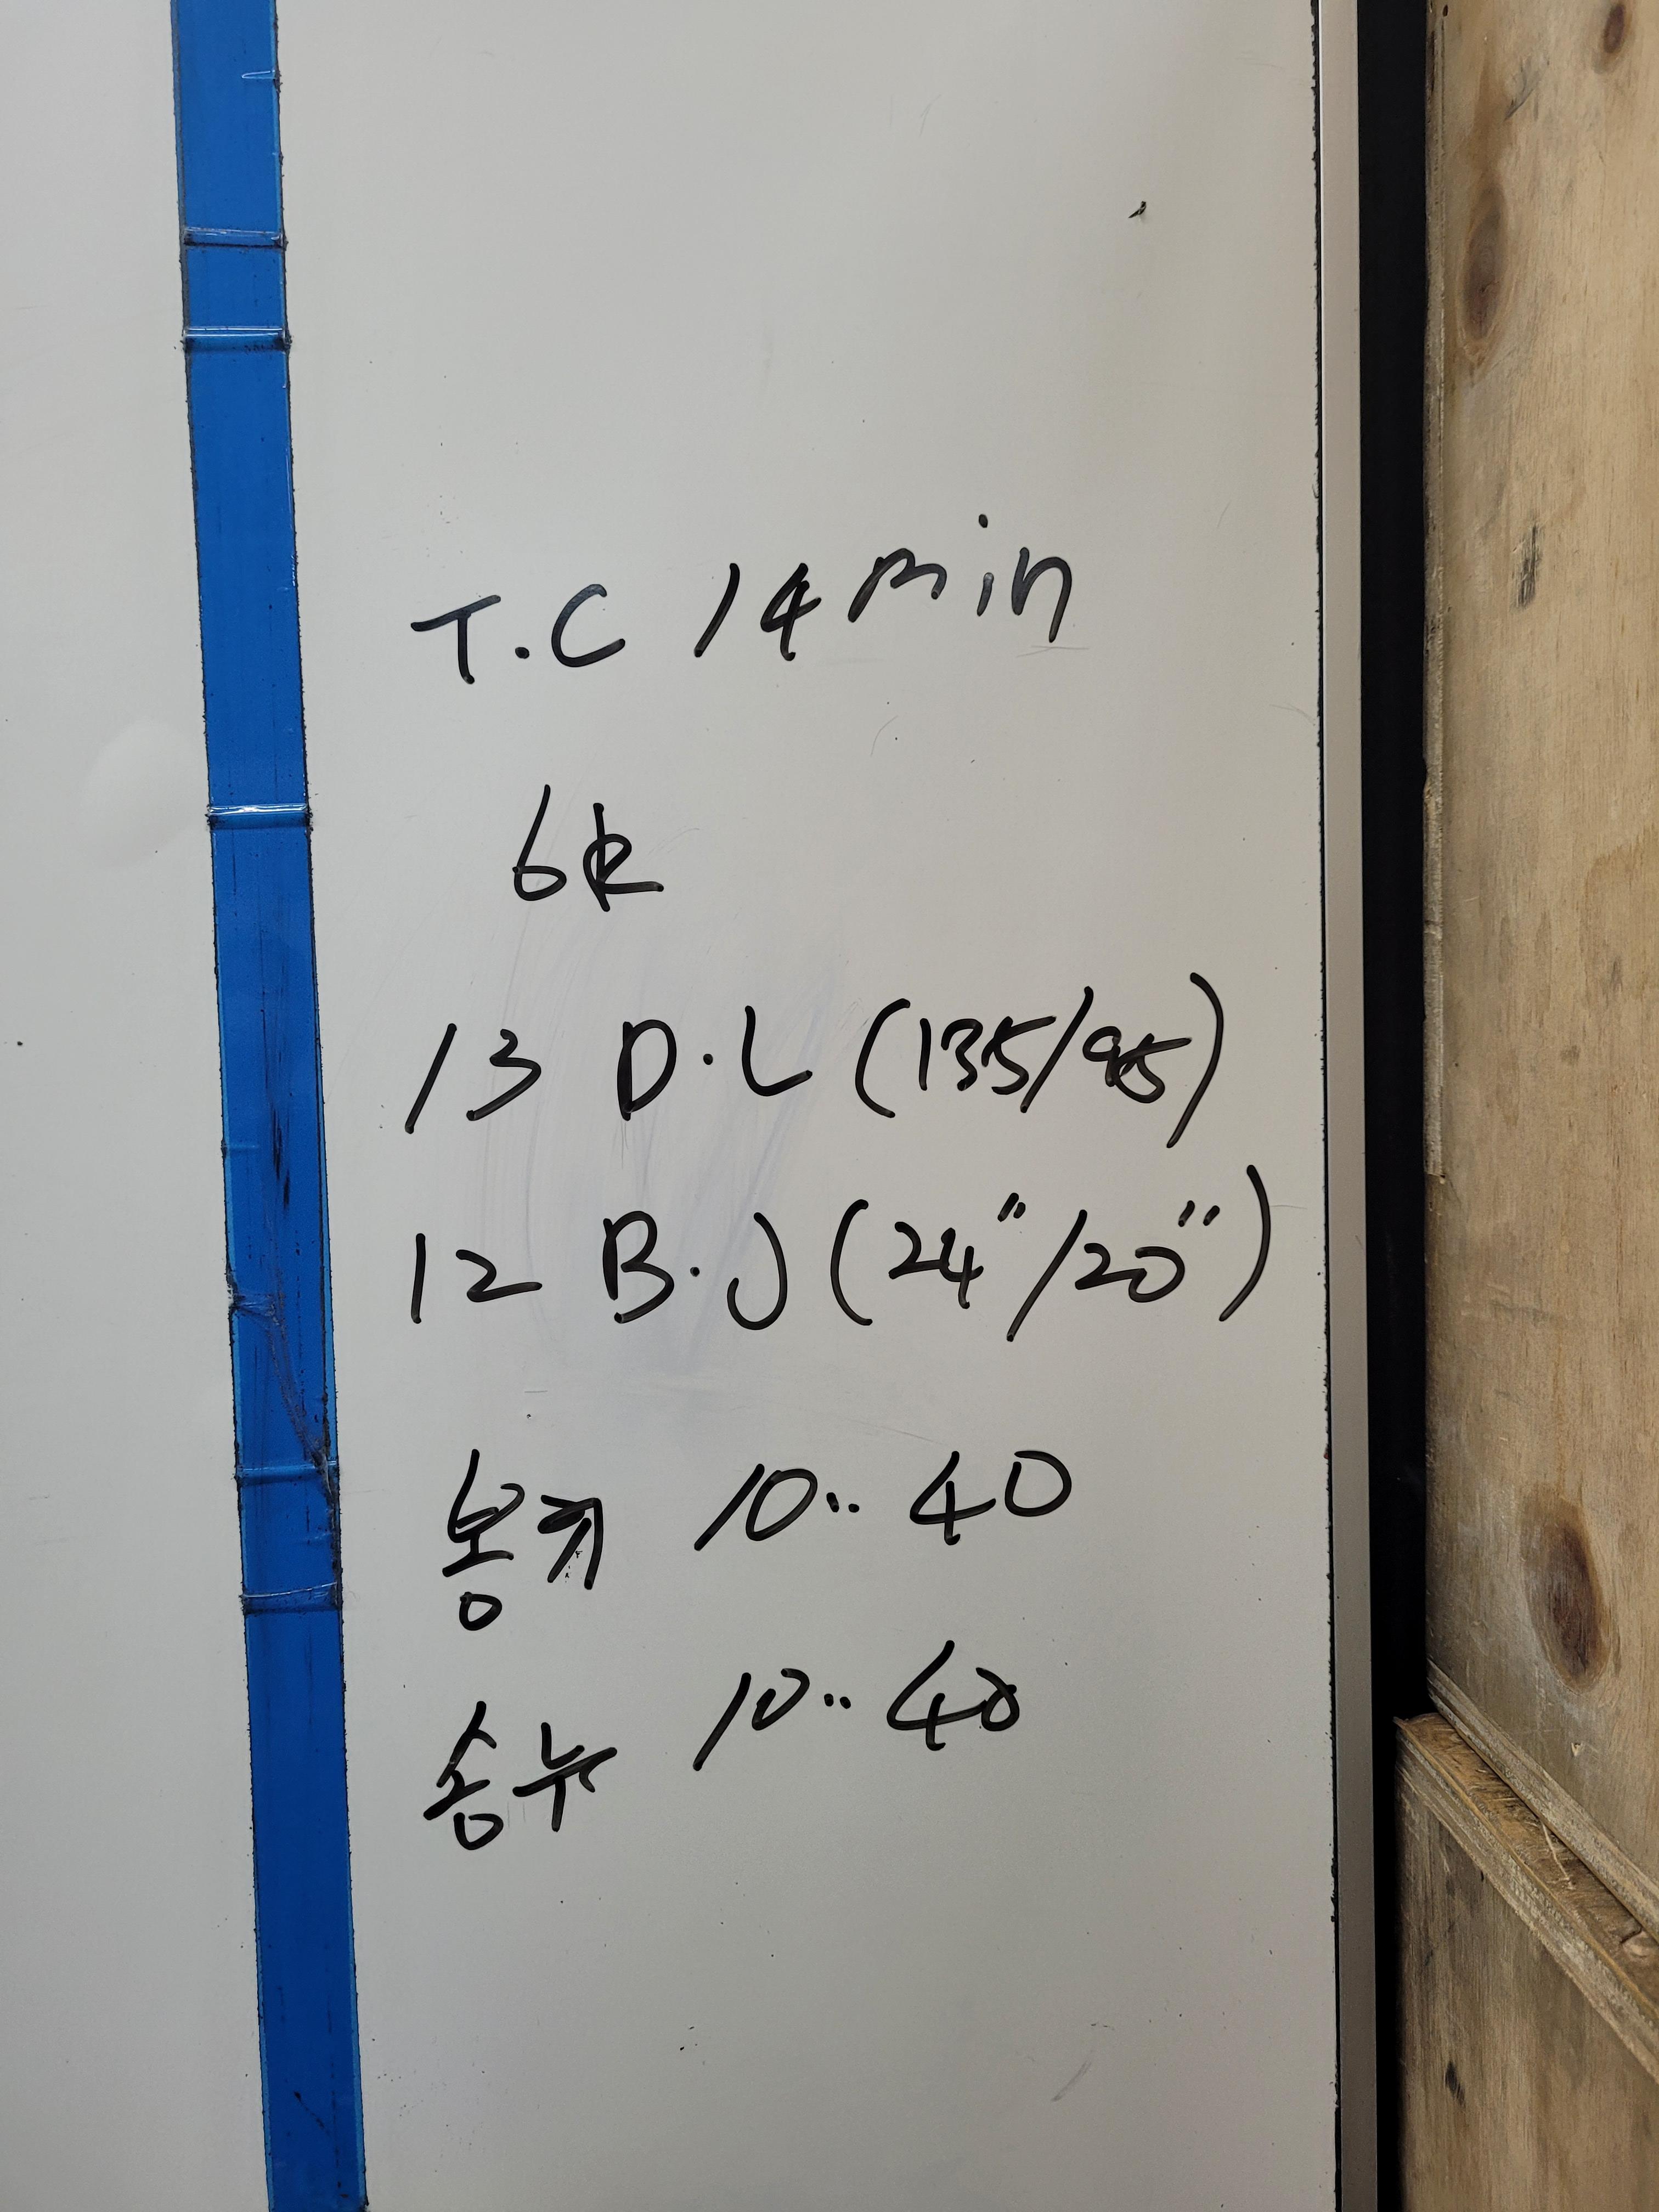 T.C 14min
6R
13 D.L (135/95)
12 B.J (24"/20")
10.. 40
송누 10.. 40